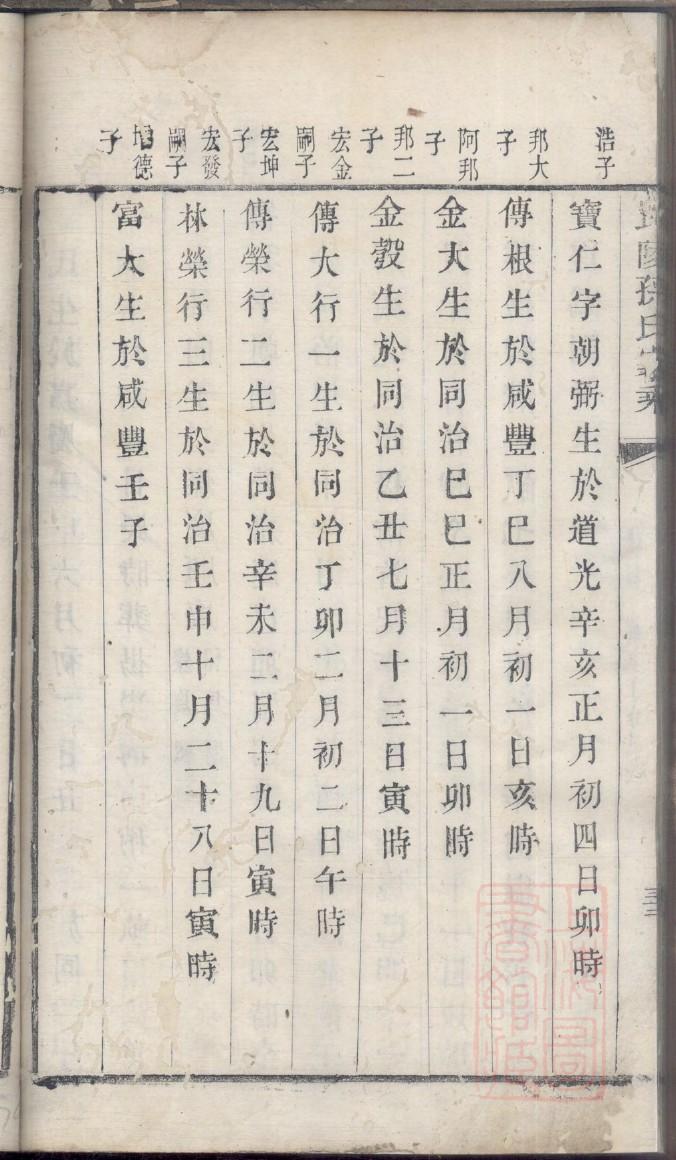 浩子
寶仁字朝弼生於道光辛亥正月初四日卯時
邦大子
傳根生於咸豐丁巳八月初一日亥時
阿邦子
金大生於同治己巳正月初一日卯時
邦二子
金榖生於同治乙丑七月十三日寅時
宏金嗣子
傳大行一生於同治丁卯二月初二日午時
宏坤子
傳榮行二生於同治辛未二月十九日寅時
宏發嗣子
林榮行三生於同治壬申十月二十八日寅時
德子
富大生於咸豐壬子
孫氏家乘
上海圖書館藏